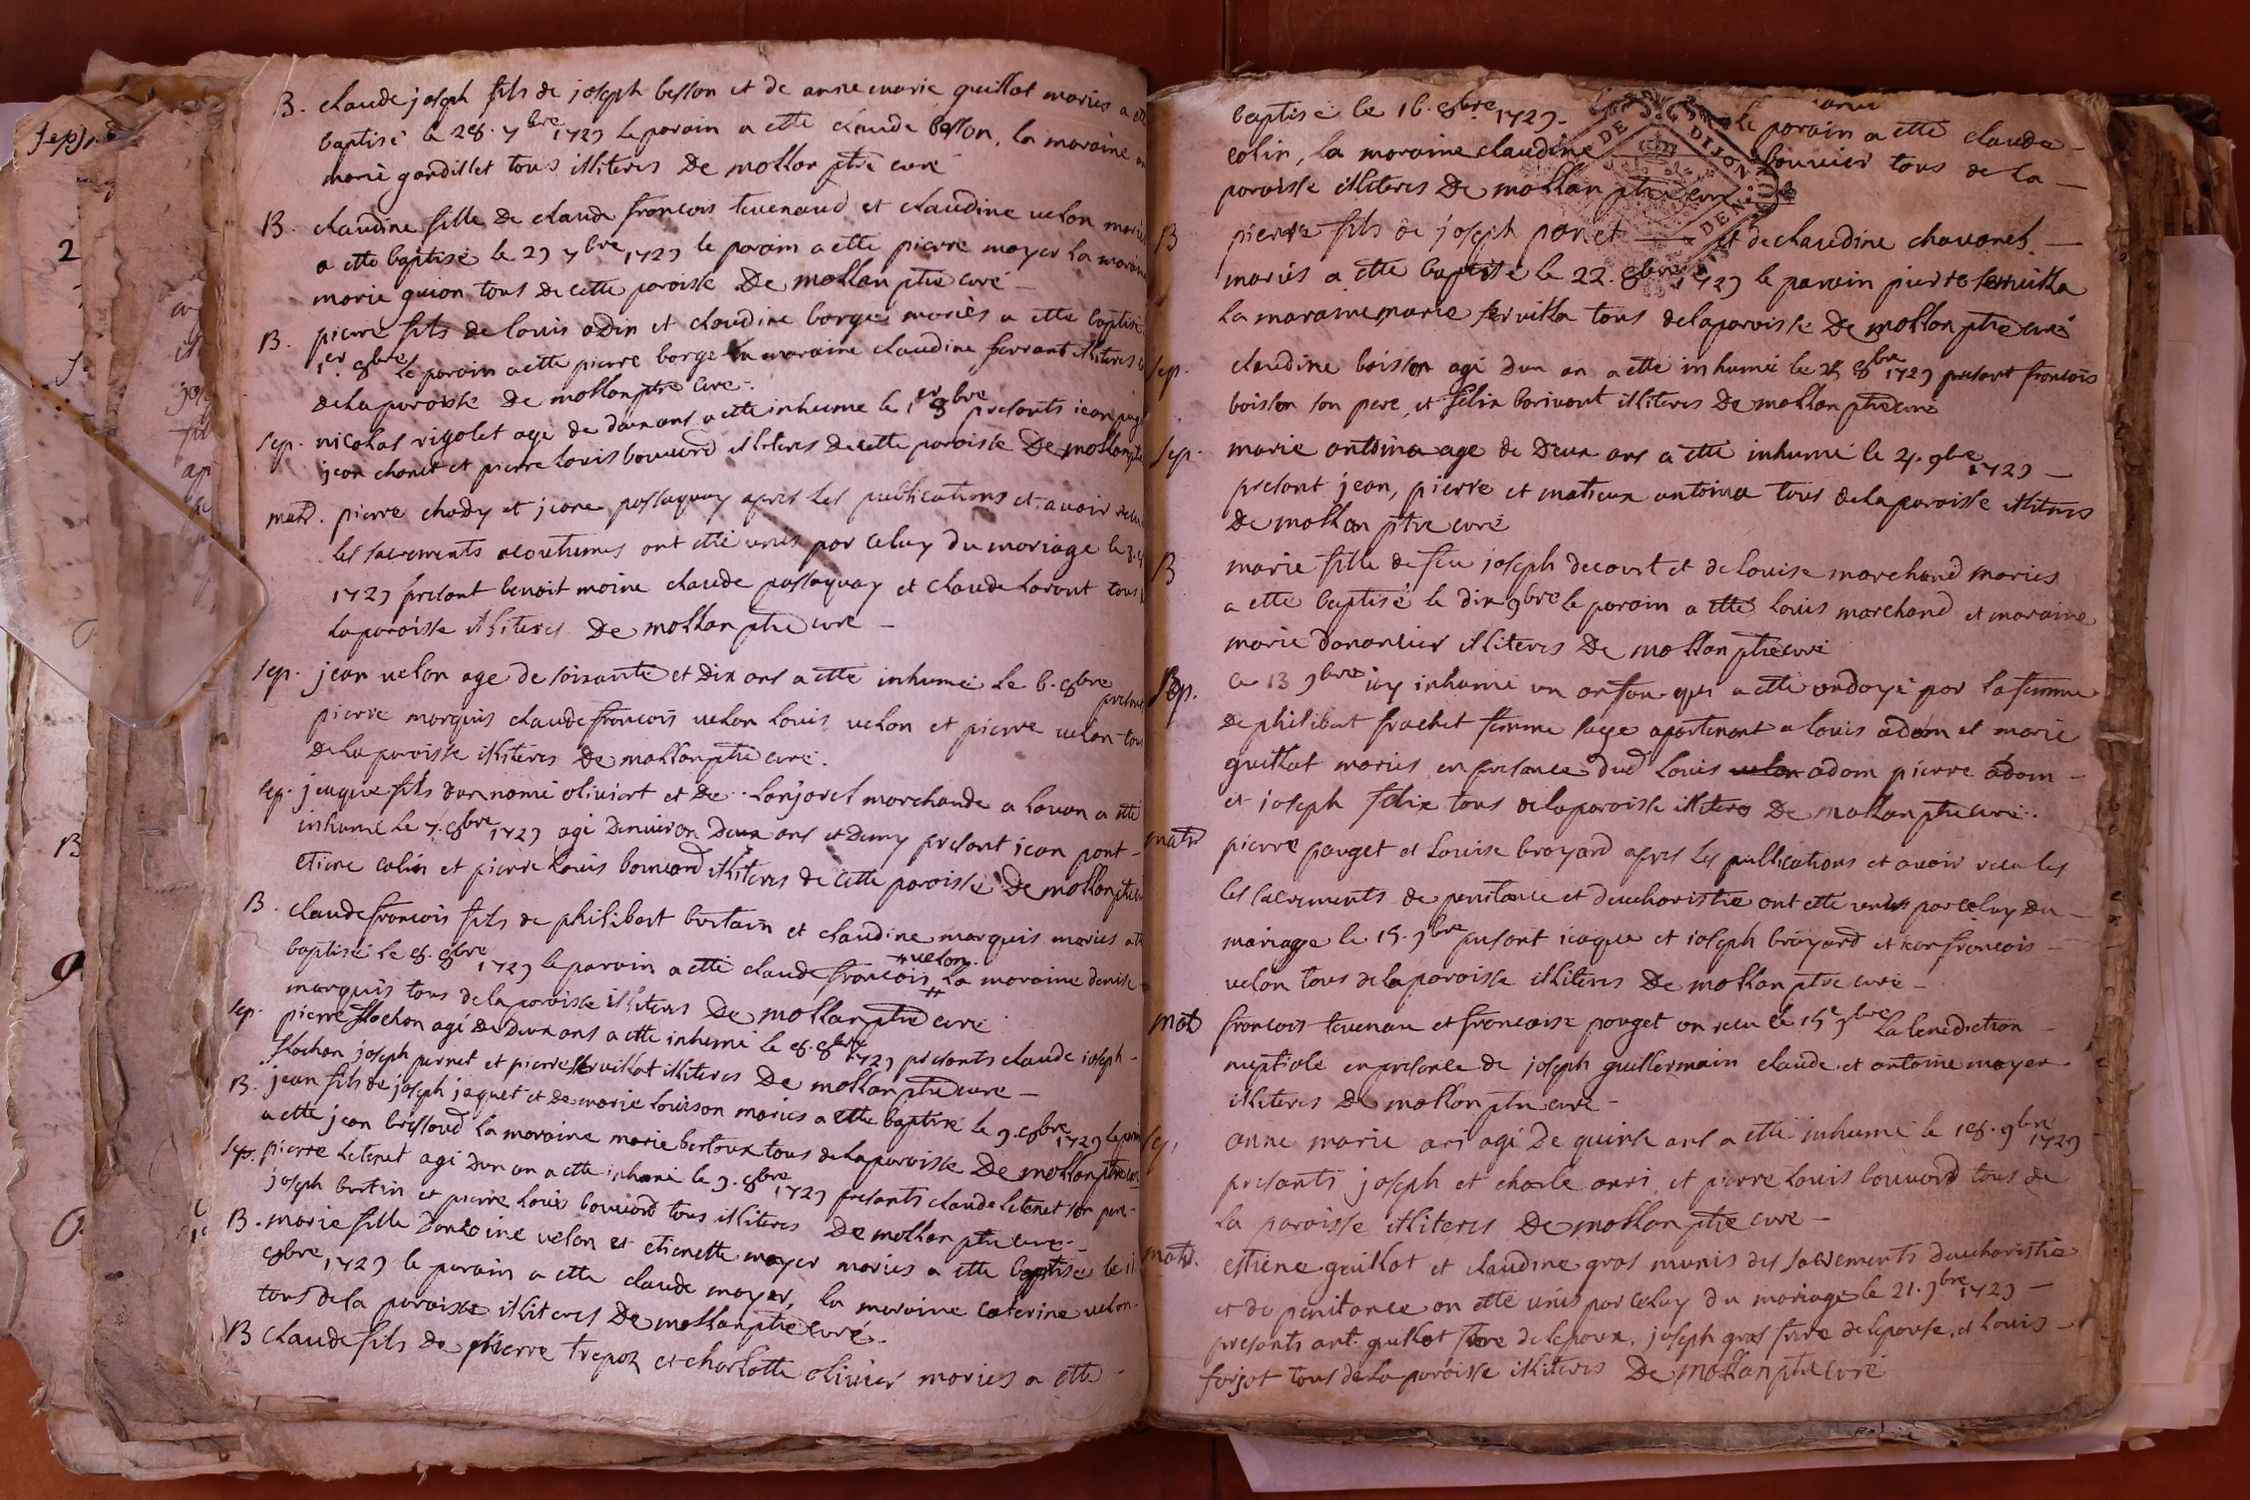 B. claude joseph fils de joseph besson et de anne marie guillot mariés a
baptisé le 28. 7bre 1729 le parain a etté claude besson, la maraine
marie gandillet tous illiteres De mollan ptre curé
B. claudine fille de claude francois tevenaud et claudine uelon
a etté baptisé le 29 7bre 1729 le parain a etté pierre moyer la maraine
marie guion tous de cette paroisse De mollan ptre curé
B. pierre fils de louis adin et claudine borges mariés a etté baptisé
1er 8bre le parain a etté pierre borge la maraine claudine ferrant illiteres
dela paroisse De mollan ptre curé.
sep. nicolas rigolet agé de deux ans a etté inhumé le 1er 8bre presants jean
jean chanet et pierre louis bouuard illiteres de cette paroisse De mollan
mar. pierre chody et jeane passaquay apres les publications et avoir
les sacrements acoutumes ont etté unis par celuy du mariage le 3.
1729 presant benoit moine claude passaquay et claude lorant tous
la paroisse illiteres De mollan ptre curé
sep. jean uelon age de soisante et dix ans a etté inhumé le 6. 8bre
pierre marquis claude francois uelon louis uelon et pierre uelon
dela paroisse illiteres De mollan ptre curé.
sep. jaque fils dun nomé oliuiert et de lonjaret marchande a louan a etté
inhumé le 7. 8bre 1729 agé denuiron deux ans et demy presant jean pont
etiene colin et pierre louis bouuard illiteres de cette paroisse De mollan ptre
B. claude francois fils de philibert bertain et claudine marquis mariés
baptisé le 8. 8bre 1729 le parain a etté claude francois # la maraine denise
# uelon.
marquis tous dela paroisse illiteres De mollan ptre curé
sep. pierre flachon agé de deux ans a etté inhumé le 8. 8bre 1729 presants claude joseph
flachon joseph pernet et pierre illiteres De mollan ptre curé
B. jean fils de joseph jaquet et de marie louison mariés a etté baptisé le 9. 8bre 1729 le
a etté jean brissoud la maraine marie bertoux tous dela paroisse De mollan ptre curé
sep. pierre letenet agé dun an a etté inhumé le 9. 8bre 1729 presants claude letenet son pere
joseph bertin et pierre louis bouuard tous illiteres De mollan ptre curé
B. marie fille dantoine uelon et etienette moyer mariés a etté baptisée le 11
8bre 1729 le parain a etté claude moyer, la maraine caterine uelon
tous dela paroisse illiteres De mollan ptre curé.
B claude fils de pierre trepoz et charlotte oliuier mariés a etté
baptisé le 16. 8bre 1729. le parain a etté claude
colin, la maraine claudine bouuier tous de la
paroisse illiteres De mollan ptre curé
B pierre fils de joseph panet et de claudine chauanes
mariés a etté baptisé le 22. 8bre 1729 le parain pierre
la maraine marie tous dela paroisse De mollan ptre curé
sep. claudine boisson agé dun an a etté inhumé le 25 8bre 1729 presant francois
boisson son pere et felix boriuont illiteres De mollan ptre curé
sep. marie antoina age de deux ans a etté inhumé le 4. 9bre 1729
presant jean, pierre et matieux antoina tous dela paroisse illiteres
De mollan ptre curé
B marie fille de feu joseph decourt et de louise marchand mariés
a etté baptisé le dix 9bre le parain a etté louis marchand et maraine
marie danancier illiteres De mollan ptre curé
Sep. Ce 13 9bre iay inhumé un anfan qui a etté ondoyé par la femme
de philibert frachet femme sage apartenant a louis adam et marie
guillot mariés en presance dud louis uelon adam pierre adam
et joseph felix tous dela paroisse illiteres De mollan ptre curé.
matr pierre pouget et louise broyard apres les publications et auoir receu les
les sacrements de penitance et deucharistie ont etté unis par celuy du
mariage le 15. 9bre presant jaque et joseph broyard et jean francois
uelon tous dela paroisse illiteres De mollan ptre curé
mat francois teuenau et francoise pouget on receu le 15e 9bre la benediction
nuptiale en presance de joseph guillermain claude et antoine moyer
illiteres De mollan ptre curé
sep. anne marie ari agé De quinse ans a etté inhumé le 18. 9bre 1729
presants joseph et charle arri et pierre louis bouuard tous de
la paroisse illiteres De mollan ptre curé
matr. estiene guillot et claudine gros munis des sacrements deucharistie
et de penitance on etté unis par celuy du mariage le 21. 9bre 1729
presants ant. guillot frere de lepoux, joseph gros frere de lepouse, et louis
forjot tous dela paroisse illiteres De mollan ptre curé